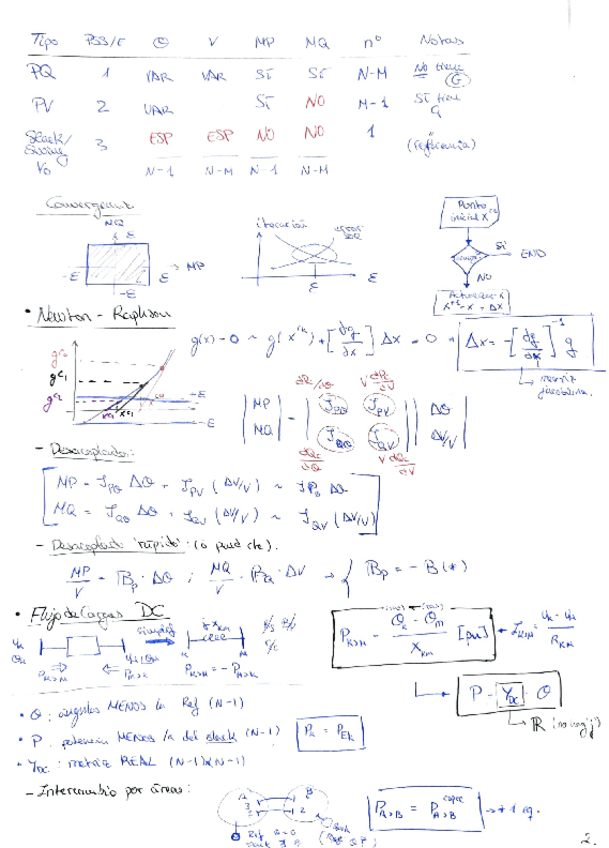 Tipo PSS/E Θ V MP MQ nº Notas
PQ 1 VAR VAR SÍ SÍ N-M No tiene G
PV 2 VAR SÍ NO M-1 SÍ tiene G
Slack/ Swing VΘ 3 ESP ESP NO NO 1 (referencia)
N-1 N-M N-1 N-M
Convergencia
MQ
ε
-ε ε MP
-ε
iteración error
ε ε
Punto inicial x
SÍ END
NO
• Newton - Raphson
g(x) = 0 ~ g(x) + [dg/dx] Δx = 0 → Δx = -[dg/dx]⁻¹ g
matriz jacobiana.
-ε
ε
|MP MQ| = |J_PΘ J_PV J_QΘ J_QV| |ΔΘ ΔV/V|
- Desacoplado:
MP = J_PΘ ΔΘ + J_PV (ΔV/V) ~ J_PΘ ΔΘ
MQ = J_QΘ ΔΘ + J_QV (ΔV/V) ~ J_QV (ΔV/V)
- Desacoplado 'rápido': (a pend cte).
MP/V = B_P · ΔΘ ; MQ/V = B_Q · ΔV → { B_P = -B (*)
• Flujo de Cargas DC
simplif
P_K>M = -P_M>K
P_K>M = (Θ_K - Θ_m)/X_km [pu]
P = Y_DC · Θ
ℝ (no complj)
• Θ: ángulos MENOS la Ref (N-1)
• P: potencia MENOS la del slack (N-1) P_K = P_EK
• Y_DC: matriz REAL (N-1)x(N-1)
- Intercambio por áreas:
A B
P_A>B = P_A>B → +1 eq.
2.